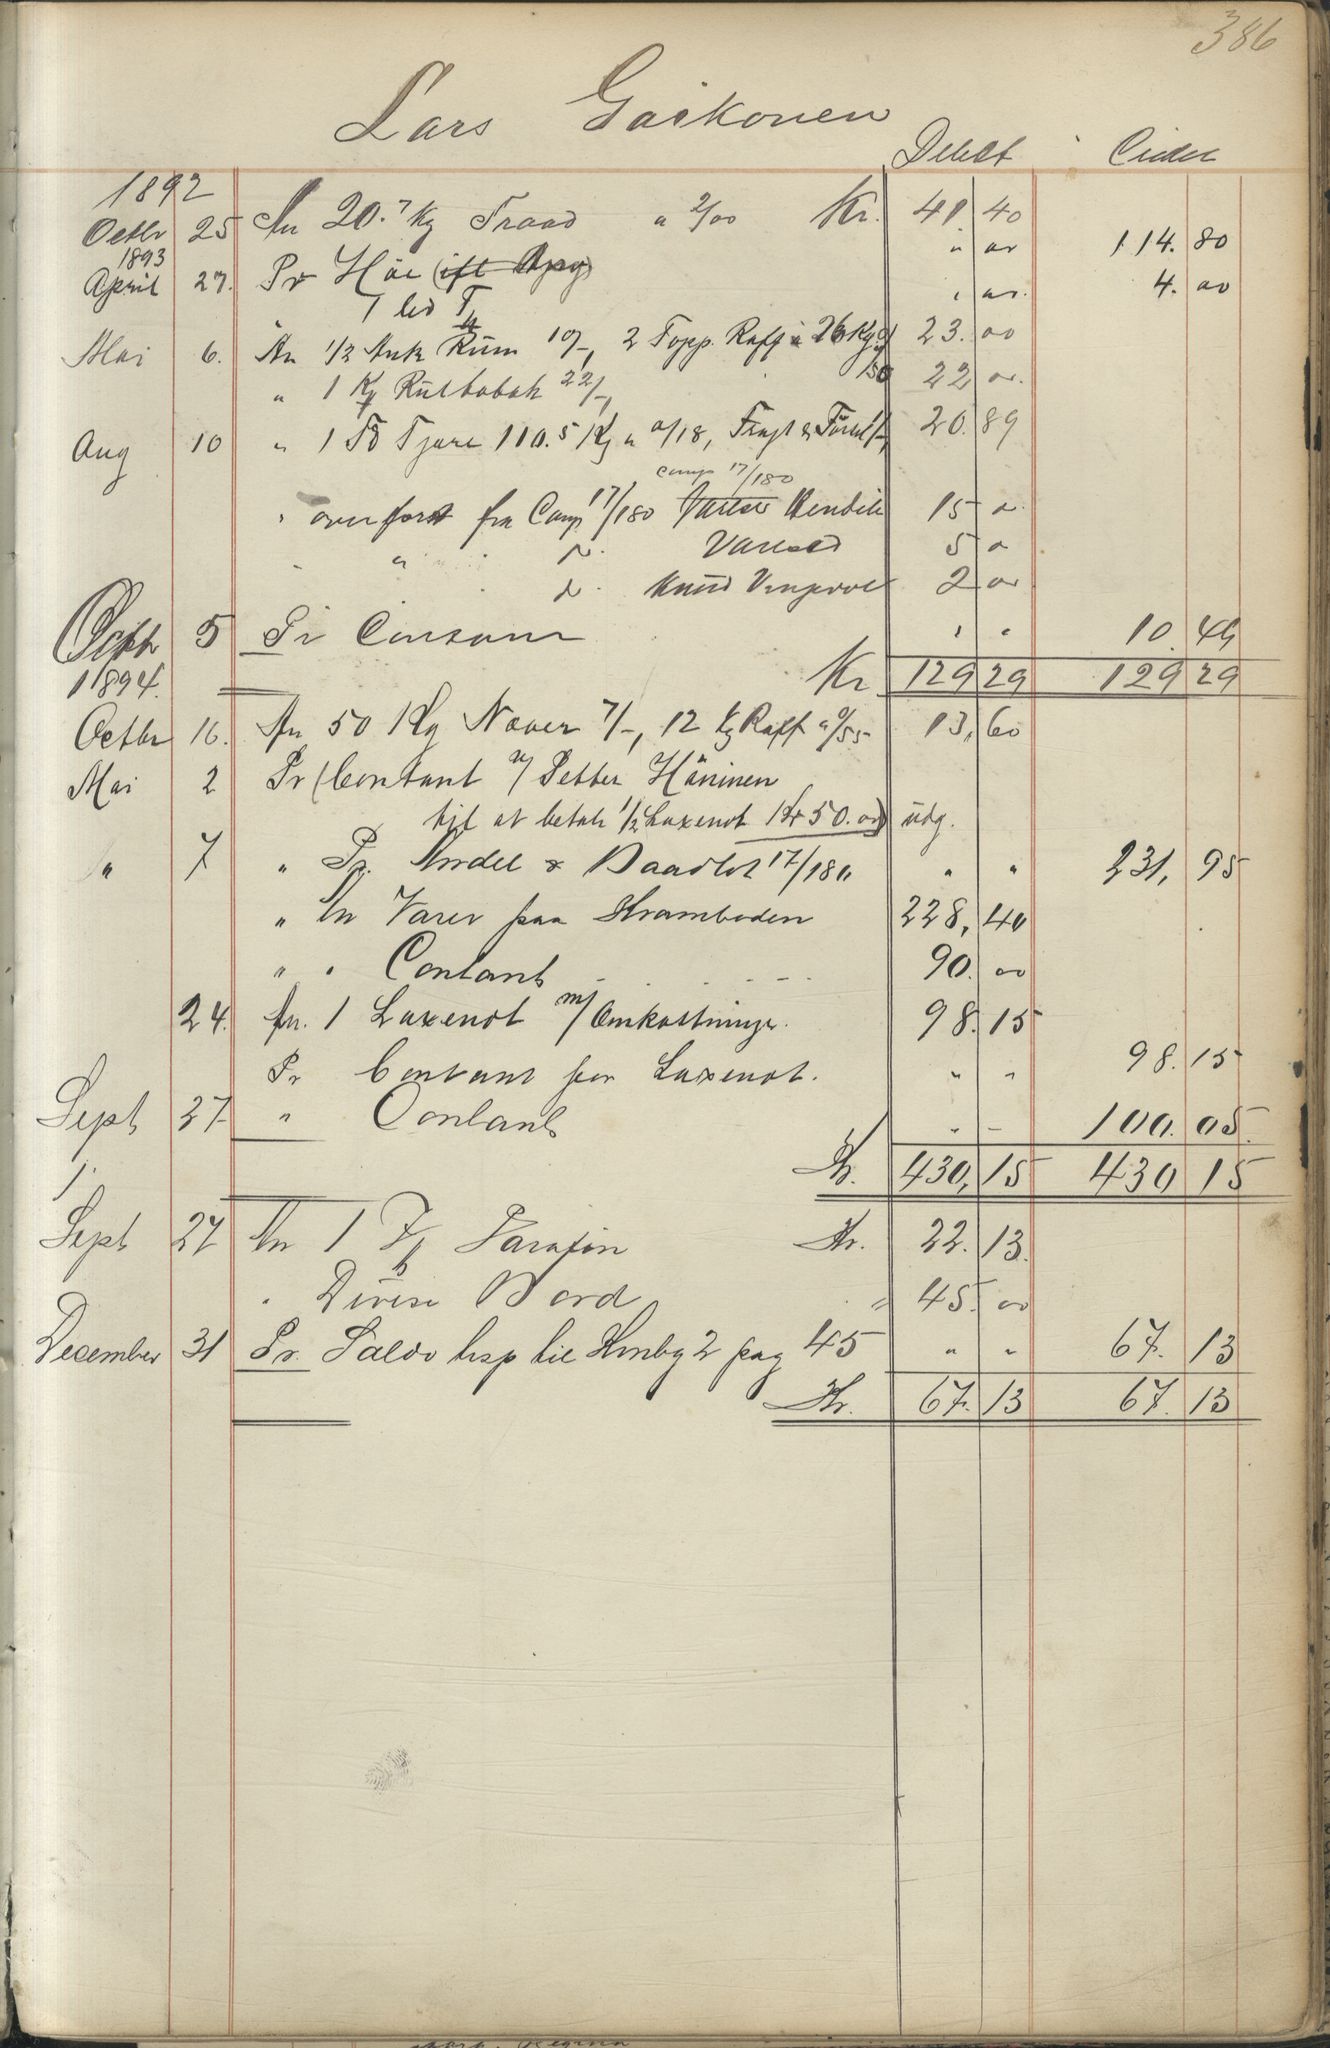 386
Lars Gaikonen
Debet Credit
1892
Octbr 25 An 20.7 Kg Traad a 2/00 Kr. 41 40
1893 " " 114. 80
April 27. Pr Höe
" 1 " " 4. 00
Mai 6. An 1/2 Ank Rum 10/-, 2 Topp. Raff a 26 Kg 23. 00
" 1 Kg Rultobak 22/-, 22 00.
Aug 10 " 1 Td Tjære 110.5 Kg a 0/18, Fragt & 20. 89
Camp 17/180
" overført fra Camp 17/180 15 "
" " " d. 5 "
d. Knud 2 00
Octbr 5 Pr Contant " " 10. 49
Kr 129 29 129 29
1894.
Octbr 16. An 50 Kg Næver 7/-, 12 Kg Raff a 0/55 13, 60
Mai 2 Pr (Contant v/ Petter Häninen
til at betale 1/2 Laxenot Kr 50.00) udg.
" 7 " Pr. Andel & Baadlot 17/180 " " 231, 95
" An Varer paa Kramboden 228, 40
" " Contant 90. 00
24. An. 1 Laxenot m/ Omkostninger. 98. 15
Pr Contant for Laxenot. " " 98. 15
Sept 27 " Contant " " 100. 05.
Kr. 430, 15 430 15
Sept 27 An 1 Fj Parafin Kr. 22. 13.
" Diverse Bord " 45. 00
December 31 Pr. Saldo trsp til Hmbg 2 pag 45 " " 67. 13
Kr. 67. 13 67. 13